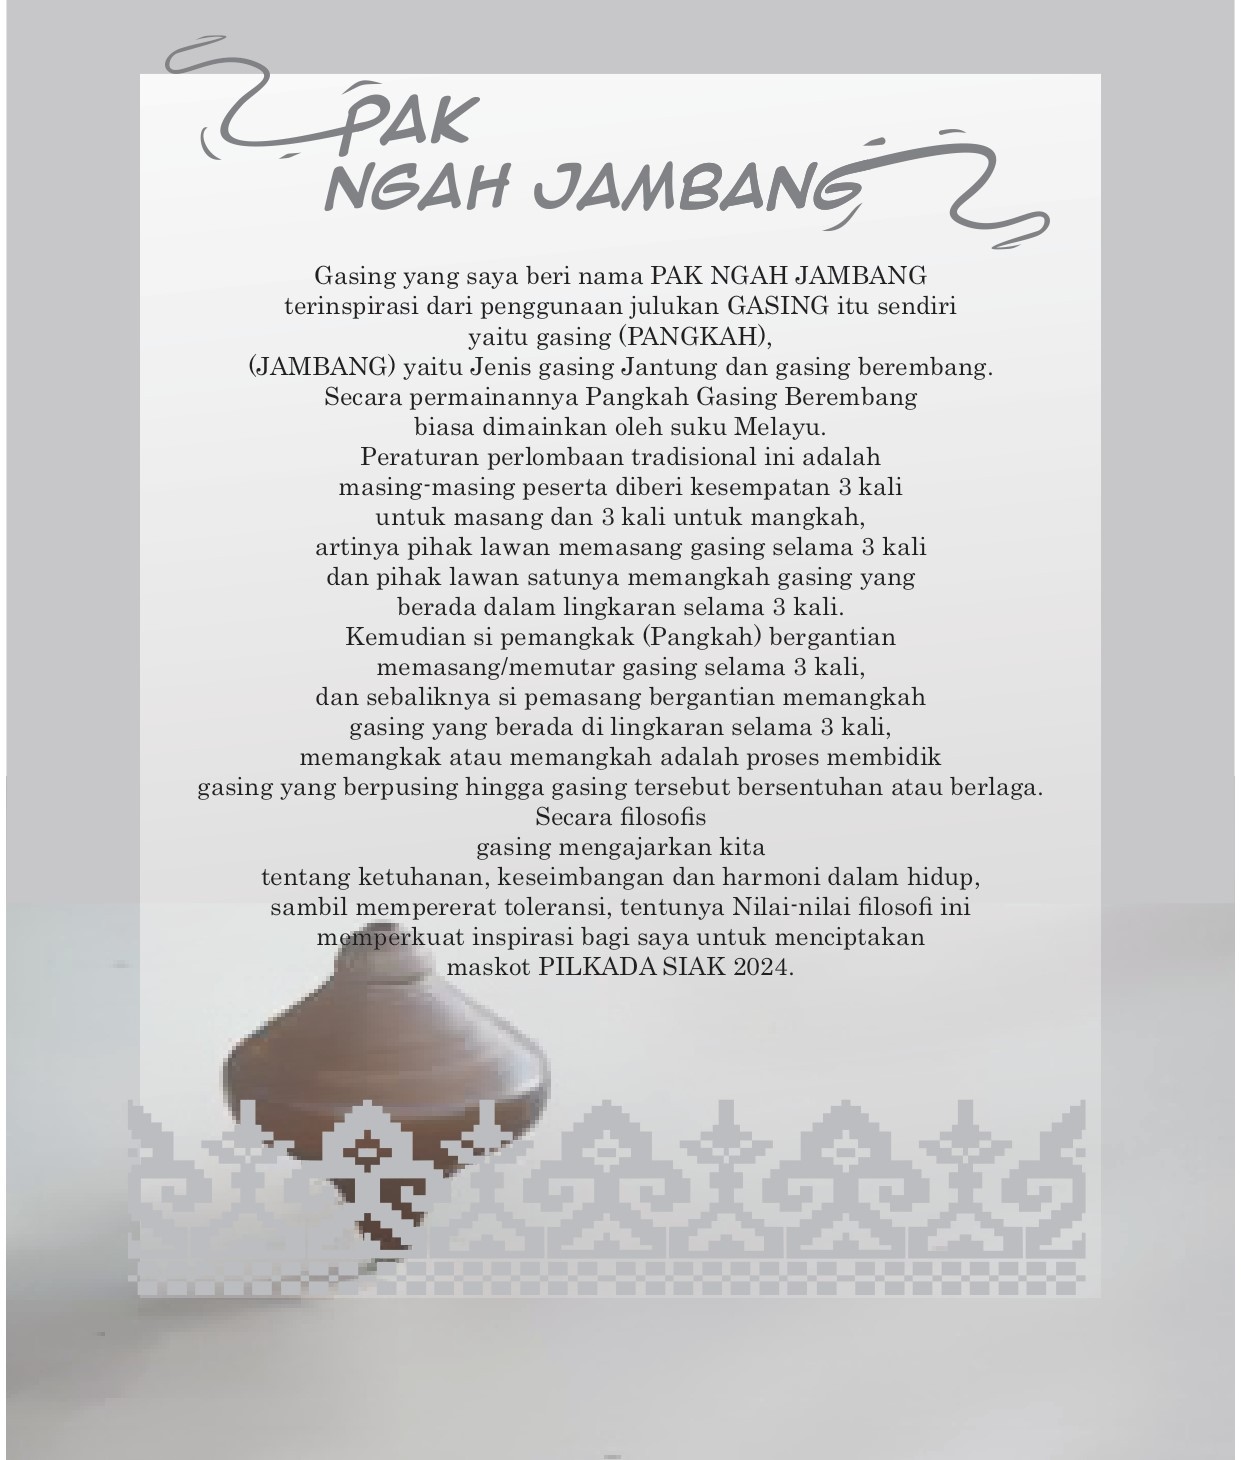 PAK
NGAH JAMBANG
Gasing yang saya beri nama PAK NGAH JAMBANG
terinspirasi dari penggunaan julukan GASING itu sendiri
yaitu gasing (PANGKAH),
(JAMBANG) yaitu Jenis gasing Jantung dan gasing berembang.
Secara permainannya Pangkah Gasing Berembang
biasa dimainkan oleh suku Melayu.
Peraturan perlombaan tradisional ini adalah
masing-masing peserta diberi kesempatan 3 kali
untuk masang dan 3 kali untuk mangkah,
artinya pihak lawan memasang gasing selama 3 kali
dan pihak lawan satunya memangkah gasing yang
berada dalam lingkaran selama 3 kali.
Kemudian si pemangkak (Pangkah) bergantian
memasang/memutar gasing selama 3 kali,
dan sebaliknya si pemasang bergantian memangkah
gasing yang berada di lingkaran selama 3 kali,
memangkak atau memangkah adalah proses membidik
gasing yang berpusing hingga gasing tersebut bersentuhan atau berlaga.
Secara filosofis
gasing mengajarkan kita
tentang ketuhanan, keseimbangan dan harmoni dalam hidup,
sambil mempererat toleransi, tentunya Nilai-nilai filosofi ini
memperkuat inspirasi bagi saya untuk menciptakan
maskot PILKADA SIAK 2024.